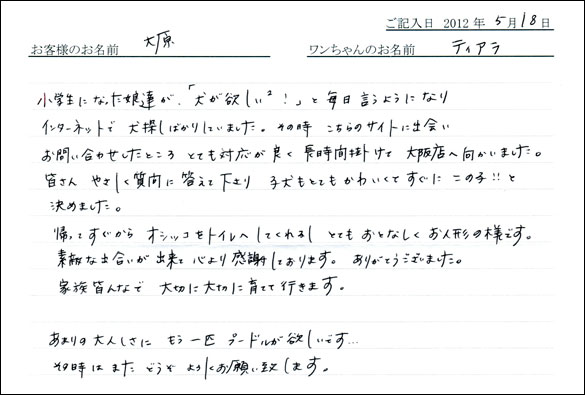 ご記入日 2012 年 5 月 18 日
お客様のお名前 大原 ワンちゃんのお名前 ティアラ
小学生になった娘達が、「犬が欲しい²！」と毎日言うようになり
インターネットで犬探しばかりしていました。その時 こちらのサイトに出会い
お問い合わせしたところ とても対応が良く 長時間掛けて 大阪店へ向かいました。
皆さん やさしく質問に答えて下さり 子犬もとてもかわいくてすぐに この子!!と
決めました。
帰ってすぐから オシッコをトイレへしてくれるし とてもおとなしくお人形の様です。
素敵な出合いが出来て心より感謝しております。ありがとうございました。
家族皆んなで 大切に大切に育てて行きます。
あまりの大人しさに もう一匹 プードルが欲しいです…
その時はまた どうぞ よろしくお願い致します。